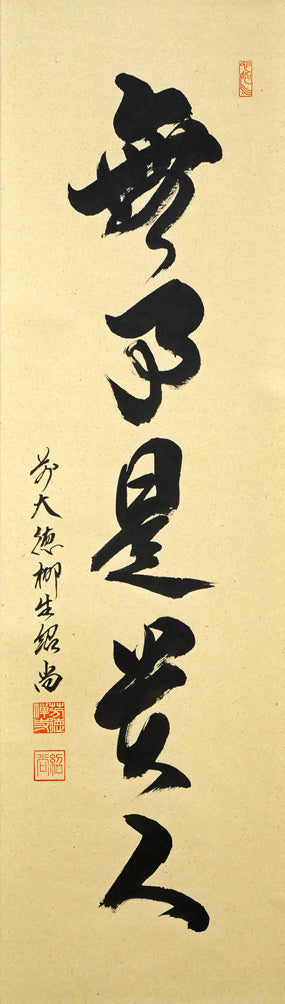 無事是貴人
前大徳柳生紹尚
紹尚